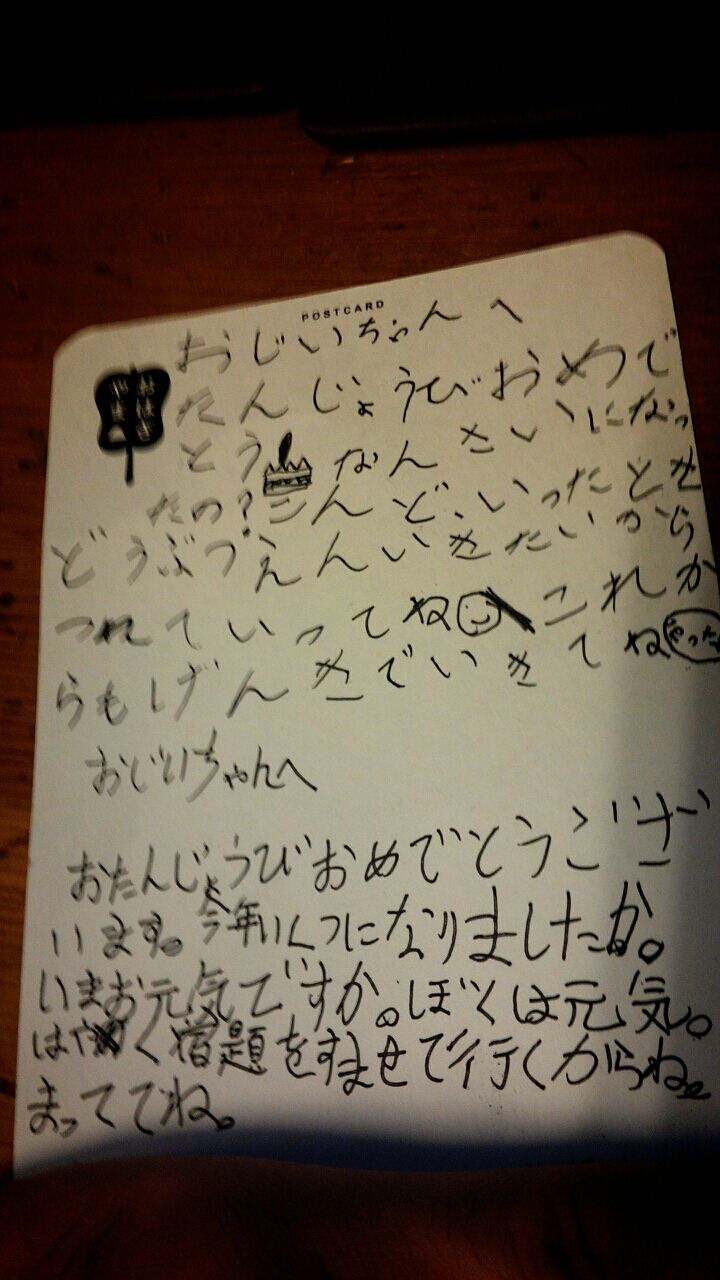 POSTCARD
おはぎ
やま
おじいちゃんへ
たんじょうびおめで
とう なんさいになっ
たの?こんど、いったとき
どうぶつえんいきたいから
つれていってね これか
らもげんきでいきてね やった
おじいちゃんへ
おたんじょうびおめでとうござ
います。今年いくつになりましたか。
いまお元気ですか。ぼくは元気。
はやく宿題をすませて行くからね。
まっててね。